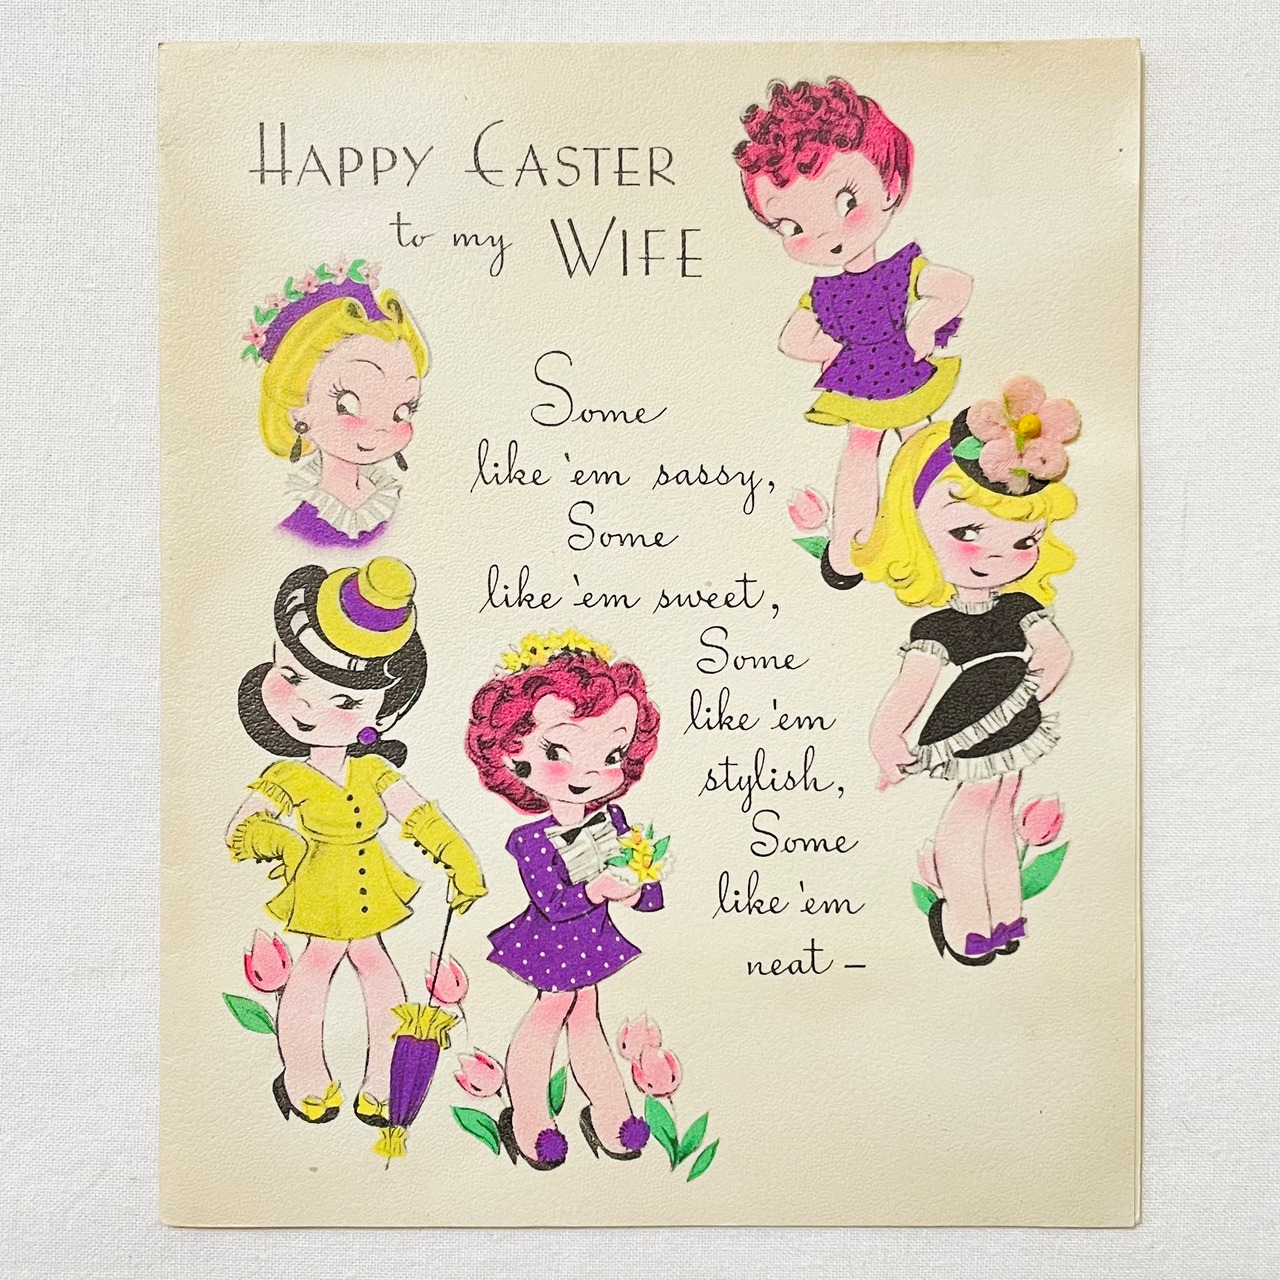 HAPPY EASTER
to my WIFE
Some
like 'em sassy,
Some
like 'em sweet,
Some
like 'em
stylish,
Some
like 'em
neat –